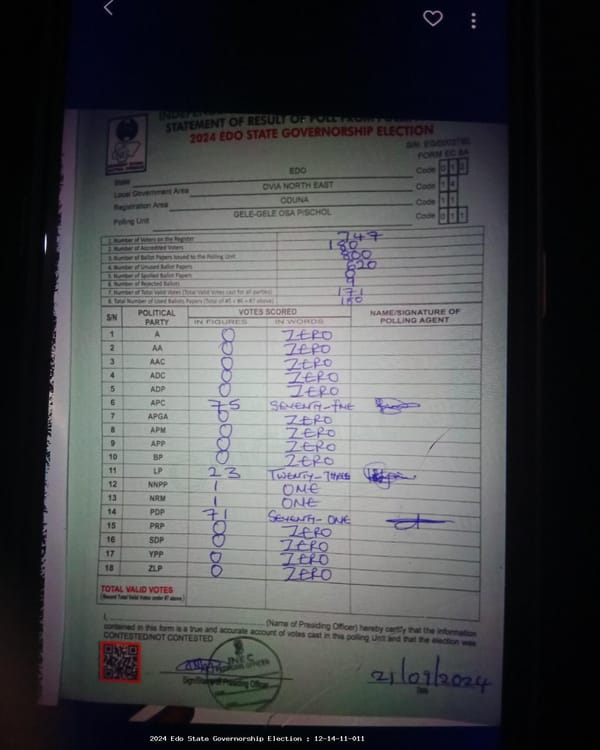 STATEMENT OF RESULT OF POLL FROM
2024 EDO STATE GOVERNORSHIP ELECTION
FORM EC 8A
State EDO Code 0 1 2
Local Government Area OVIA NORTH EAST Code 1 4
Registration Area ODUNA Code 1 1
Polling Unit GELE-GELE OSA P/SCHOL Code 0 1 1
1. Number of Voters on the Register 747
2. Number of Accredited Voters 180
3. Number of Ballot Papers Issued to the Polling Unit 800
4. Number of Unused Ballot Papers 620
5. Number of Spoiled Ballot Papers 0
6. Number of Rejected Ballots 9
7. Number of Total Valid Votes (Total Valid Votes cast for all parties) 171
8. Total Number of Used Ballot Papers (Total of #5 + #6 + #7 above) 180
S/N POLITICAL PARTY VOTES SCORED NAME/SIGNATURE OF POLLING AGENT
IN FIGURES IN WORDS
1 A 0 ZERO
2 AA 0 ZERO
3 AAC 0 ZERO
4 ADC 0 ZERO
5 ADP 0 ZERO
6 APC 75 SEVENTY-FIVE
7 APGA 0 ZERO
8 APM 0 ZERO
9 APP 0 ZERO
10 BP 0 ZERO
11 LP 23 TWENTY-THREE
12 NNPP 1 ONE
13 NRM 1 ONE
14 PDP 71 SEVENTY-ONE
15 PRP 0 ZERO
16 SDP 0 ZERO
17 YPP 0 ZERO
18 ZLP 0 ZERO
TOTAL VALID VOTES
(Record Total Valid Votes under #7 above)
I, (Name of Presiding Officer) hereby certify that the information
contained in this form is a true and accurate account of votes cast in this polling Unit and that the election was
CONTESTED/NOT CONTESTED
INEC
PRESIDING OFFICER
Signature of Presiding Officer
21/09/2024
Date
2024 Edo State Governorship Election : 12-14-11-011